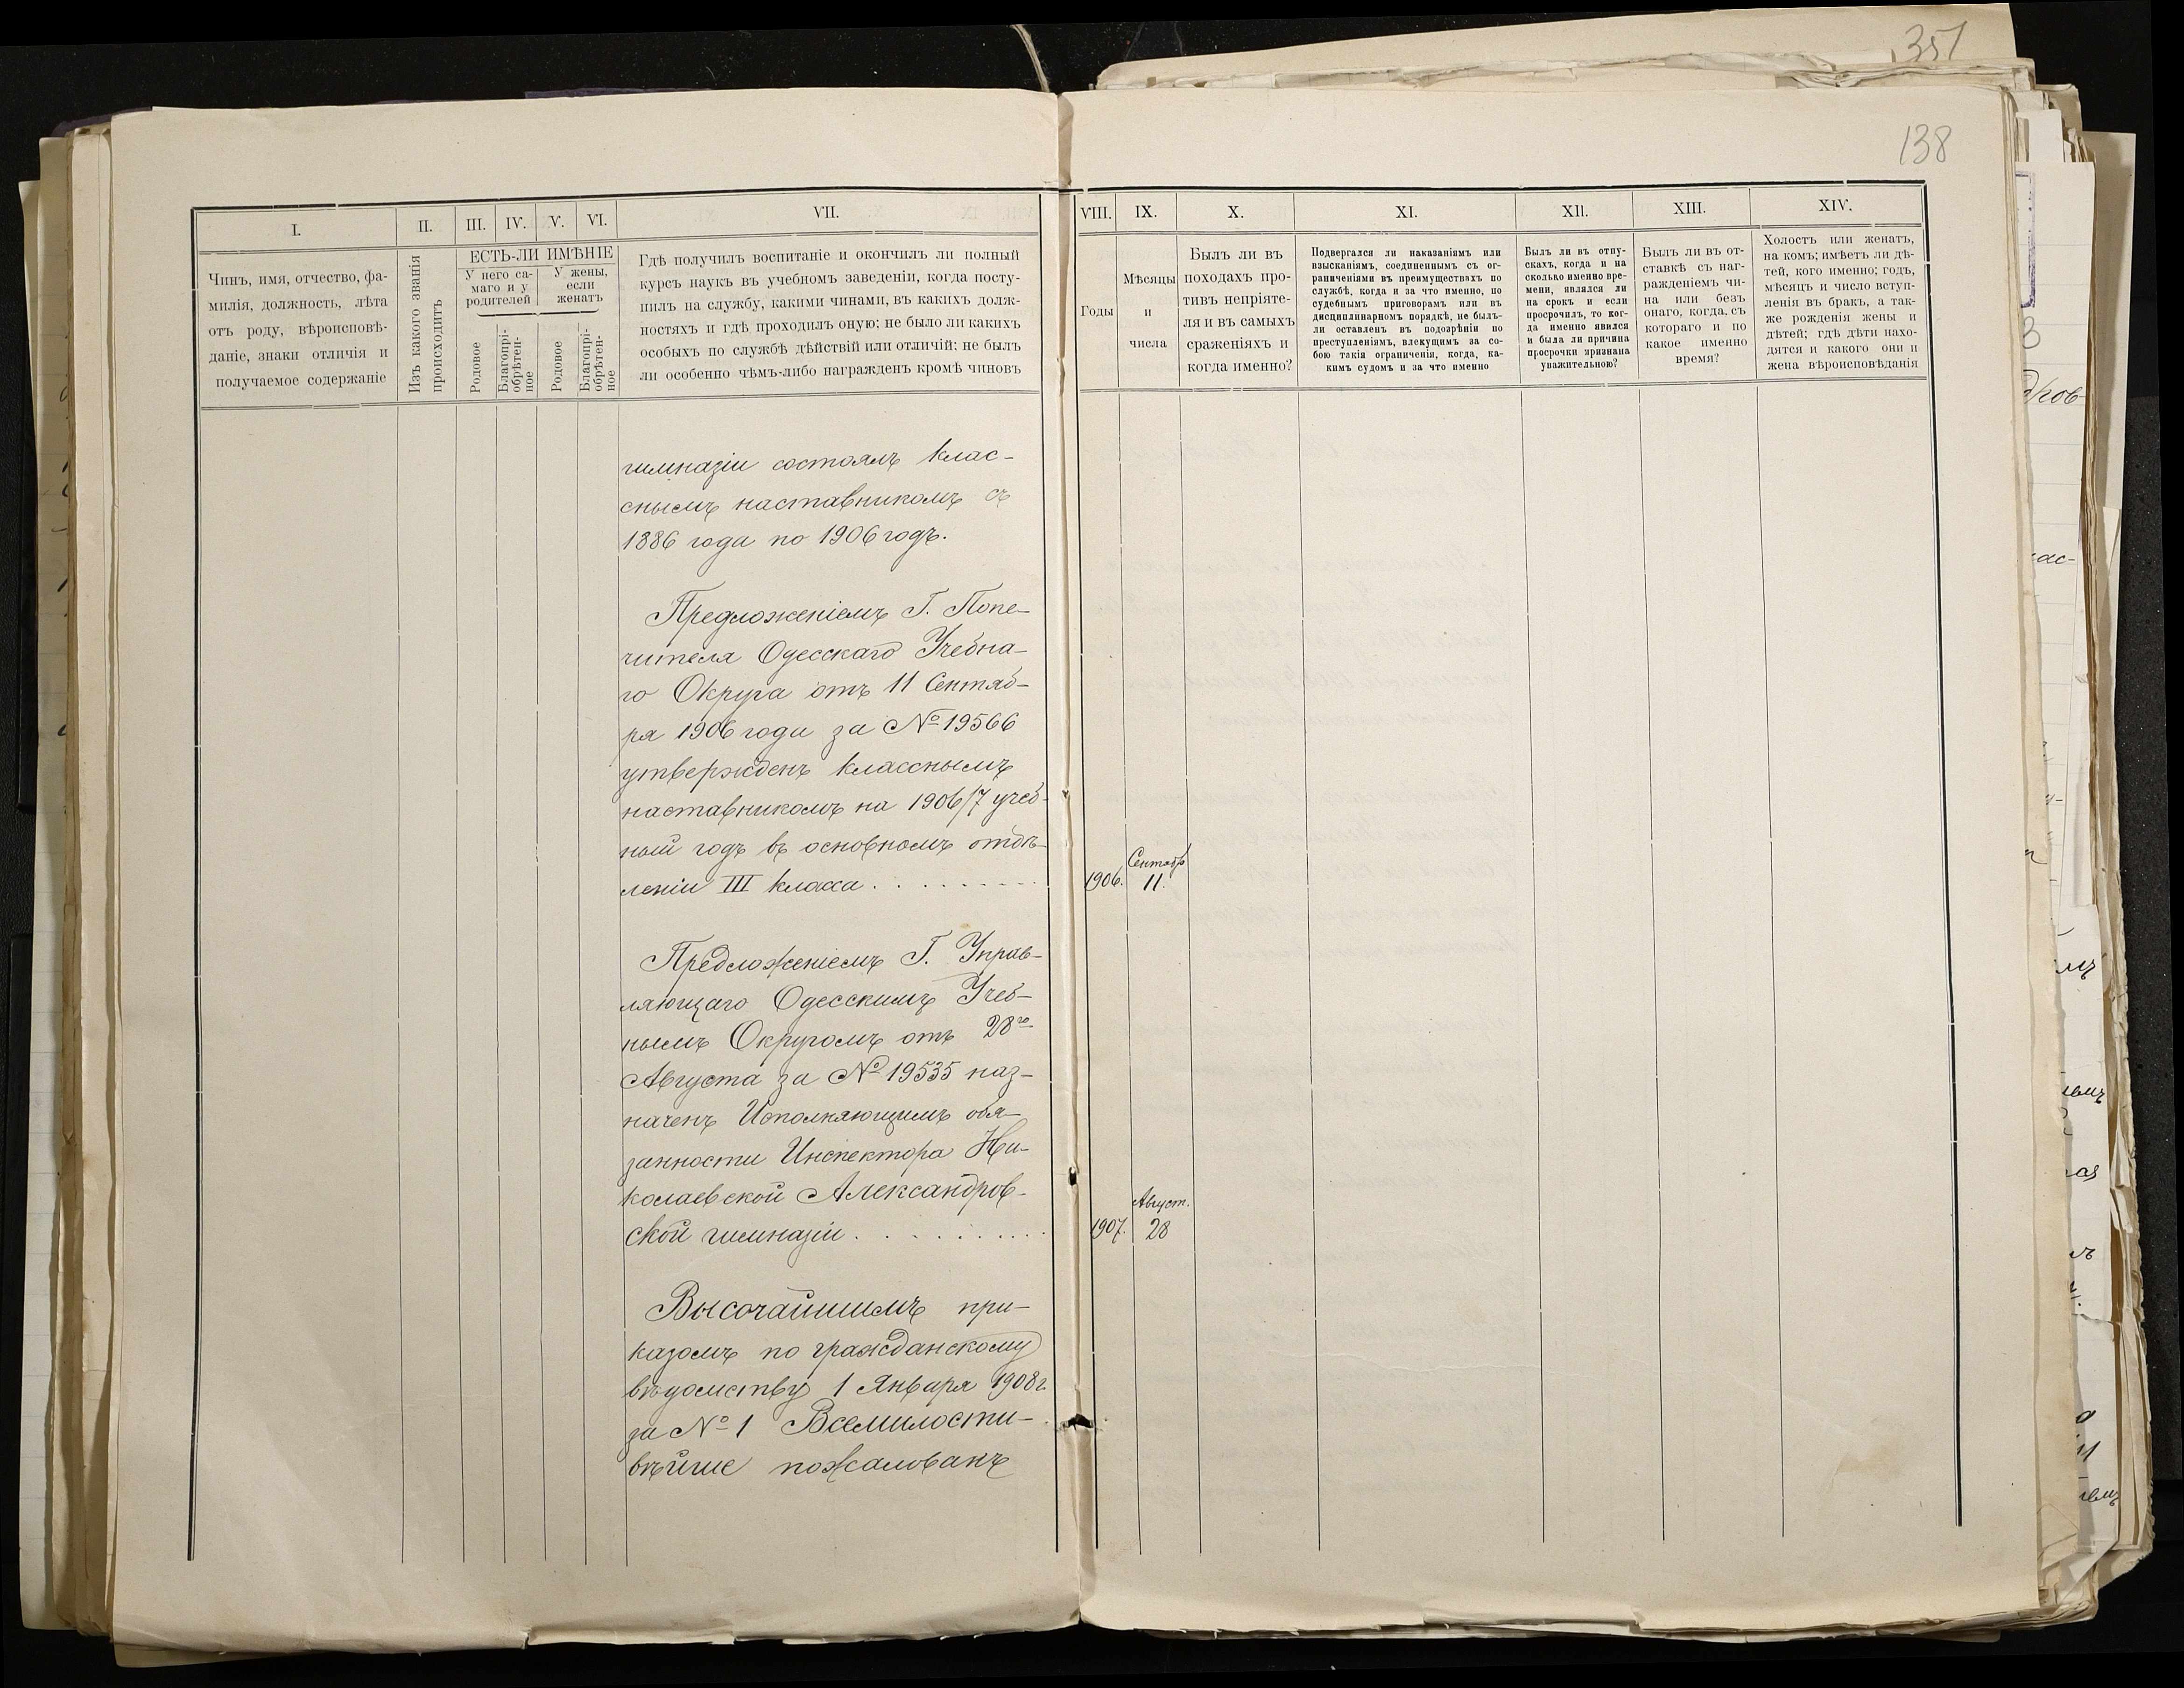 351
138
I.
II.
III.
IV.
V.
VI.
VII.
VIII.
IX.
X.
XI.
XII.
XIII.
XIV.
Чинъ, имя, отчество, фа-
милія, должность, лѣта
отъ роду, вѣроисповѣ-
даніе, знаки отличія и
получаемое содержаніе
Изъ какого званія
происходитъ
ЕСТЬ-ЛИ ИМѢНІЕ
У него са-
маго и у
родителей
У жены,
если
женатъ
Родовое
Благопрі-
обрѣтен-
ное
Родовое
Благопрі-
обрѣтен-
ное
Гдѣ получилъ воспитаніе и окончилъ ли полный
курсъ наукъ въ учебномъ заведеніи, когда посту-
пилъ на службу, какими чинами, въ какихъ долж-
ностяхъ и гдѣ проходилъ оную; не было ли какихъ
особыхъ по службѣ дѣйствій или отличій; не былъ
ли особенно чѣмъ-либо награжденъ кромѣ чиновъ
Годы
Мѣсяцы
и
числа
Былъ ли въ
походахъ про-
тивъ непріяте-
ля и въ самыхъ
сраженіяхъ и
когда именно?
Подвергался ли наказаніямъ или
взысканіямъ, соединеннымъ съ ог-
раниченіями въ преимуществахъ по
службѣ, когда и за что именно, по
судебнымъ приговорамъ или въ
дисциплинарномъ порядкѣ, не былъ-
ли оставленъ въ подозрѣніи по
преступленіямъ, влекущимъ за со-
бою такія ограниченія, когда, ка-
кимъ судомъ и за что именно
Былъ ли въ отпу-
скахъ, когда и на
сколько именно вре-
мени, являлся ли
на срокъ и если
просрочилъ, то ког-
да именно явился
и была ли причина
просрочки признана
уважительною?
Былъ ли въ от-
ставкѣ съ наг-
ражденіемъ чи-
на или безъ
онаго, когда, съ
котораго и по
какое именно
время?
Холостъ или женатъ,
на комъ; имѣетъ ли дѣ-
тей, кого именно; годъ,
мѣсяцъ и число вступ-
ленія въ бракъ, а так-
же рожденія жены и
дѣтей; гдѣ дѣти нахо-
дятся и какого они и
жена вѣроисповѣданія
гимназіи состоялъ клас-
снымъ наставникомъ съ
1886 года по 1906 годъ.
Предложеніемъ Г. Попе-
чителя Одесскаго Учебна-
го Округа отъ 11 Сентяб-
ря 1906 года за № 19566
утвержденъ класснымъ
наставникомъ на 1906/7 учеб-
ный годъ въ основномъ отдѣ-
леніи III класса . . . . . . . . .
1906.
Сентябр
11.
Предложеніемъ Г. Управ-
ляющаго Одесскимъ Учеб-
нымъ Округомъ отъ 28го
Августа за № 19535 наз-
наченъ Исполняющимъ обя-
занности Инспектора Ни-
колаевской Александров-
ской гимназіи . . . . . . . . . .
1907.
Август.
28
Высочайшимъ при-
казомъ по гражданскому
вѣдомству 1 Января 1908 г.
за № 1 Всемилости-
вѣйше пожалованъ